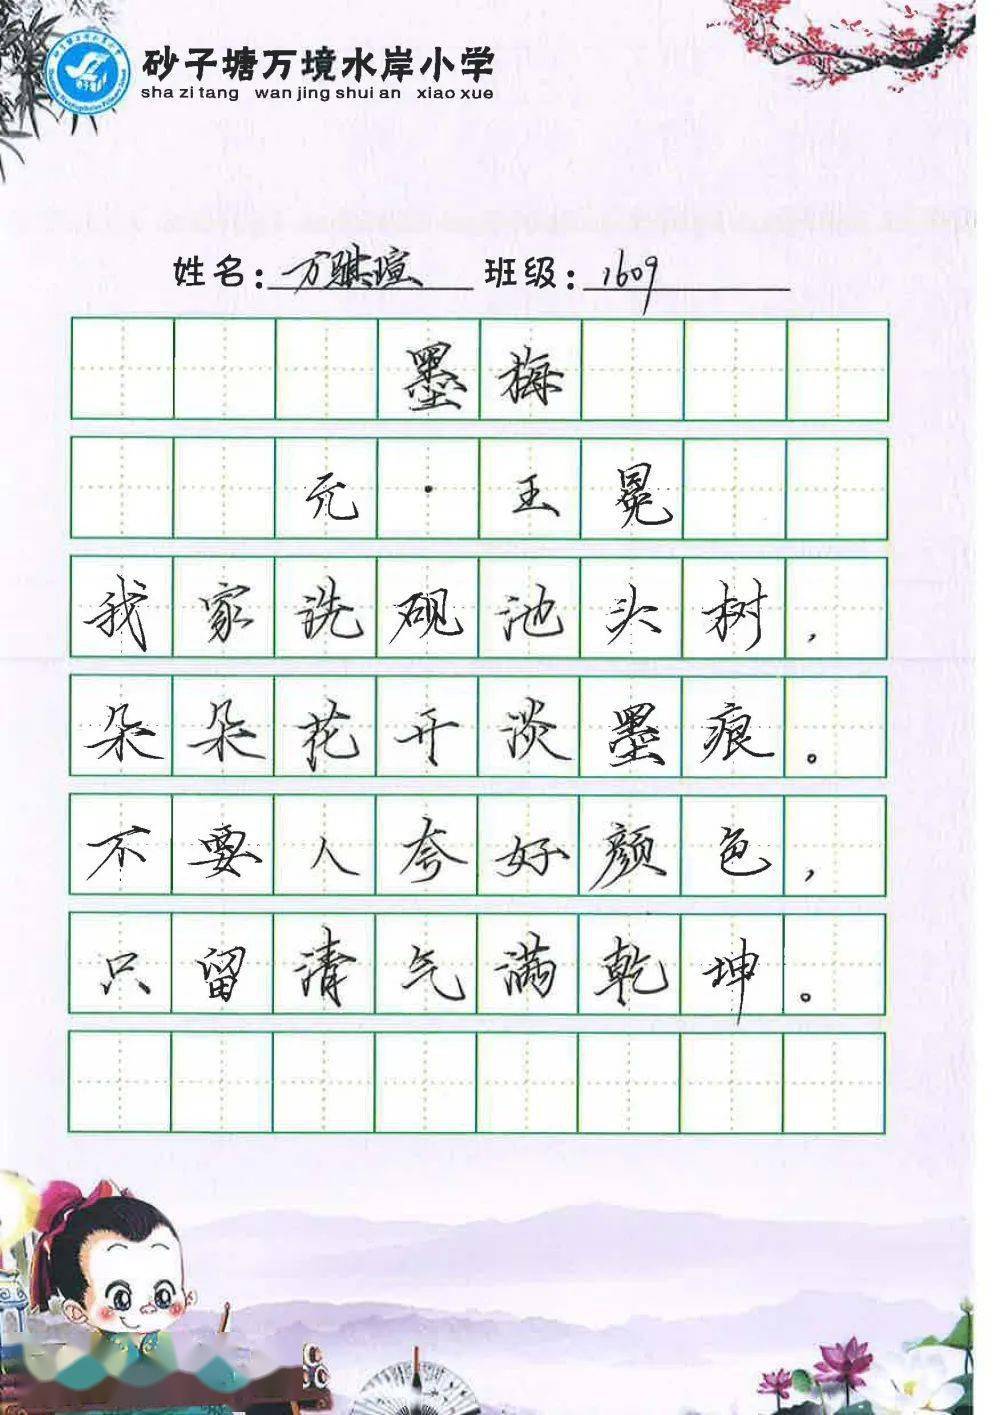 砂子塘万境水岸小学
sha zi tang wan jing shui an xiao xue
姓名：万骐瑄 班级：1609
墨梅
元·王冕
我家洗砚池头树，
朵朵花开淡墨痕。
不要人夸好颜色，
只留清气满乾坤。